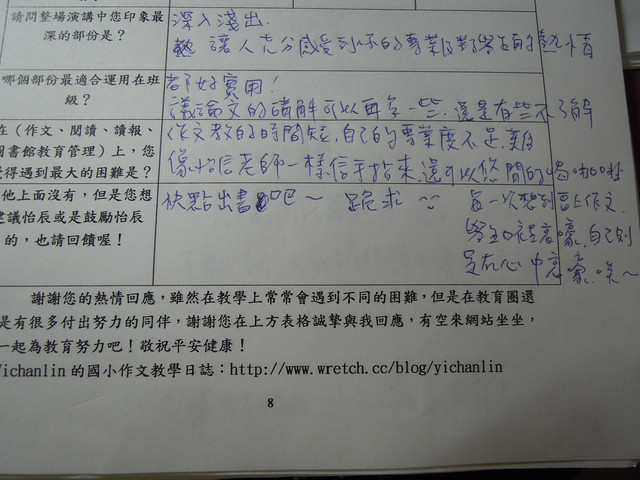 請問整場演講中您印象最
深的部份是？
深入淺出.
熱 讓人充分感受到你的專業及對學生的熱情
哪個部份最適合運用在班
級？
都好實用!
議論文的講解可以再多一些, 還是有些不了解
在(作文、閱讀、讀報、
圖書館教育管理)上，您
覺得遇到最大的困難是？
作文教的時間短, 自己的專業度不足, 難
像怡信老師一樣信手拈來, 還可以悠閒的喝咖啡
他上面沒有，但是您想
建議怡辰或是鼓勵怡辰
的，也請回饋喔！
快點出書吧～ 跪求
每一次想到要上作文,
學生口裡哀嚎, 自己則
是在心中哀嚎, 唉～
謝謝您的熱情回應，雖然在教學上常常會遇到不同的困難，但是在教育圈還
是有很多付出努力的同伴，謝謝您在上方表格誠摯與我回應，有空來網站坐坐，
一起為教育努力吧！敬祝平安健康！
Yichanlin 的國小作文教學日誌：http://www.wretch.cc/blog/yichanlin
8